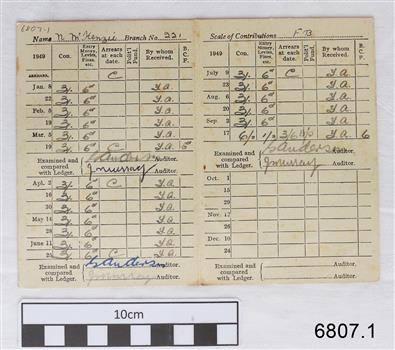 6807.1
Name N. McKenzie Branch No. 221
1949 Con. Entry Money, Levies, Fines, etc. Arrears at each date Polit'l Fund. By whom Received. B. C. F.
ARREARS C
Jan. 8 3/- 6d F.A.
22 3/- 6d F.A.
Feb. 5 3/- 6d F.A.
19 3/- 6d F.A.
Mar. 5 3/- 6d F.A.
19 3/- 6d C F.A. 6
Examined and compared with Ledger. Sanders Auditor.
J Murray Auditor.
Apl. 2 3/- 6d C F.A.
16 3/- 6d F.A.
30 3/- 6d F.A.
May 14 3/- 6d F.A.
28 3/- 6d F.A.
June 11 3/- 6d F.A.
25 3/- 6d C F.A.
Examined and compared with Ledger. Sanders Auditor.
J Murray Auditor.
Scale of Contributions F.B.
1949 Con. Entry Money, Levies, Fines, etc. Arrears at each date Polit'l Fund. By whom Received. B. C. F.
July 9 3/- 6d C F.A.
23 3/- 6d F.A.
Aug. 6 3/- 6d F.A.
20 3/- 6d F.A.
Sep. 3 3/- 6d F.A.
17 6/- 1/- 3/6 F.A. 6
Examined and compared with Ledger. Sanders Auditor.
J Murray Auditor.
Oct. 1
15
29
Nov. 12
26
Dec. 10
24
Examined and compared with Ledger. Auditor.
Auditor.
10cm
6807.1